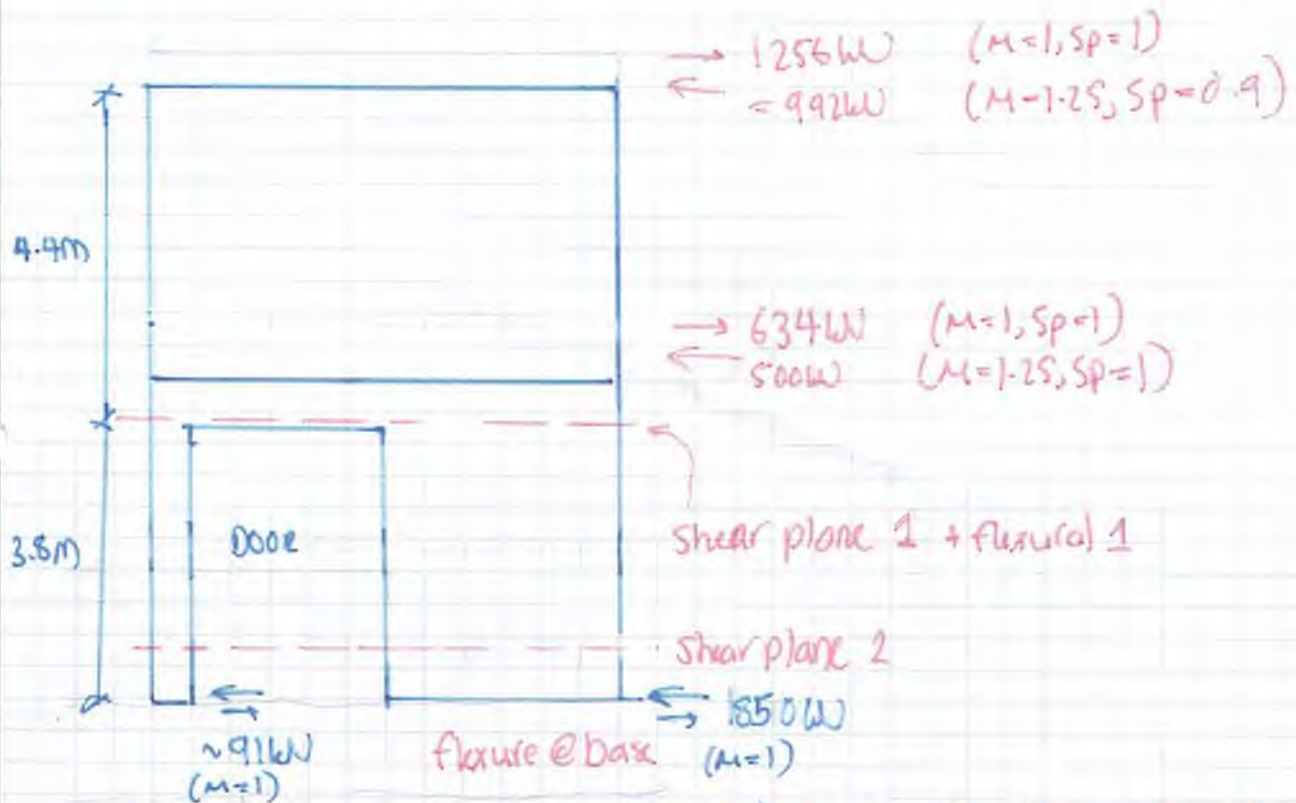 → 1256kN (μ=1, Sp=1)
← =992kN (μ=1.25, Sp=0.9)
4.4m
→ 634kN (μ=1, Sp=1)
← 500kN (μ=1.25, Sp=1)
3.8m
DOOR
Shear plane 1 + flexural 1
Shear plane 2
~91kN
(μ=1)
flexure @ base
1850kN
(μ=1)